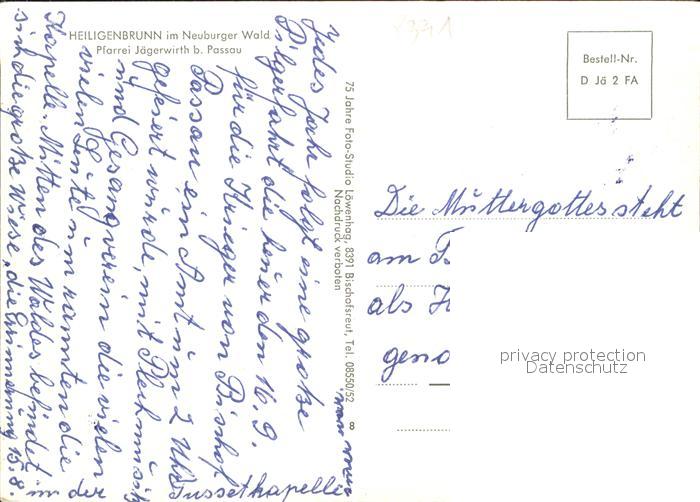 HEILIGENBRUNN im Neuburger Wald
Pfarrei Jägerwirth b. Passau
Jedes Jahr folgt eine große
Pilgerfahrt die heuer den 16. 9.
für die Krieger von Bischof
Passau ein Amt um 2 Uhr
gefeiert wurde, mit Blechmusik
und Gesangverein die vielen
vielen Leute umrannten die
Kapelle. Mitten des Waldes befindet
sich die große Wiese, die Erinnerung 15.8
in der Tussetkapelle
75 Jahre Foto-Studio Löwenhag, 8391 Bischofsreut, Tel. 08550/52
Nachdruck verboten
8
Bestell-Nr.
D Jä 2 FA
Die Muttergottes steht
am
als
geno
privacy protection
Datenschutz